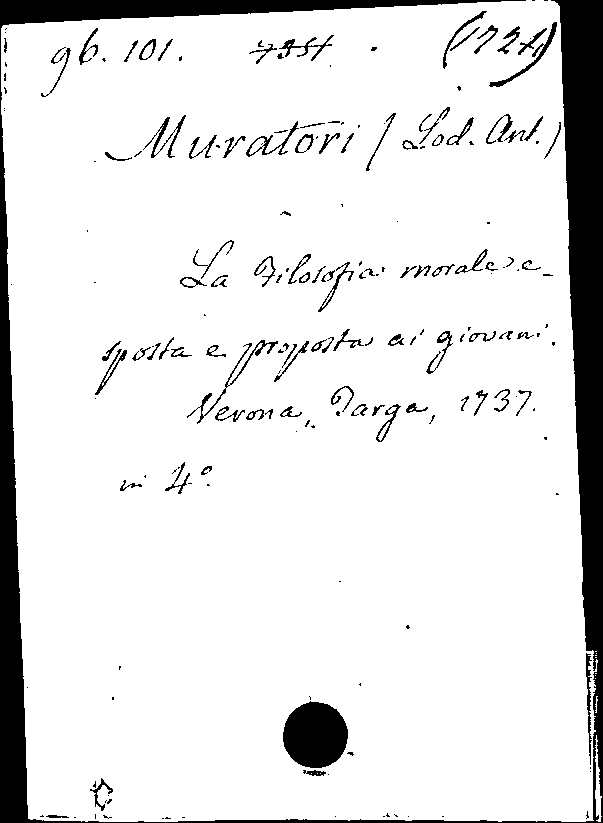 96. 101.
Muratori (Lod. Ant.)
La Filosofia morale e-
sposta e proposta ai giovani.
Verona, Targa, 1737.
in 4º.